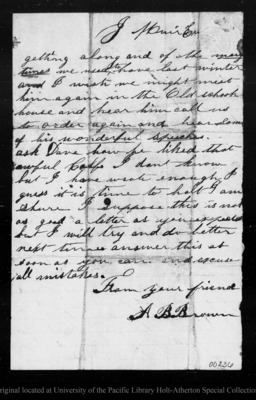 J Muir Esq
getting along and of the many
times we used to have last winter
and I wish we might meet
him again in the Old school
house and hear him call us
to order again and hear some
of his wonderful speeches.
ask Dave how he liked that
awful I don't know
but I have wrote enough I
guess it is time to halt I am
shure I suppose this is not
as good a letter as you expected
but I will try and do better
next time answer this as
soon as you can and excuse
all mistakes.
From your friend
A B Brown
00236
original located at University of the Pacific Library Holt-Atherton Special Collection